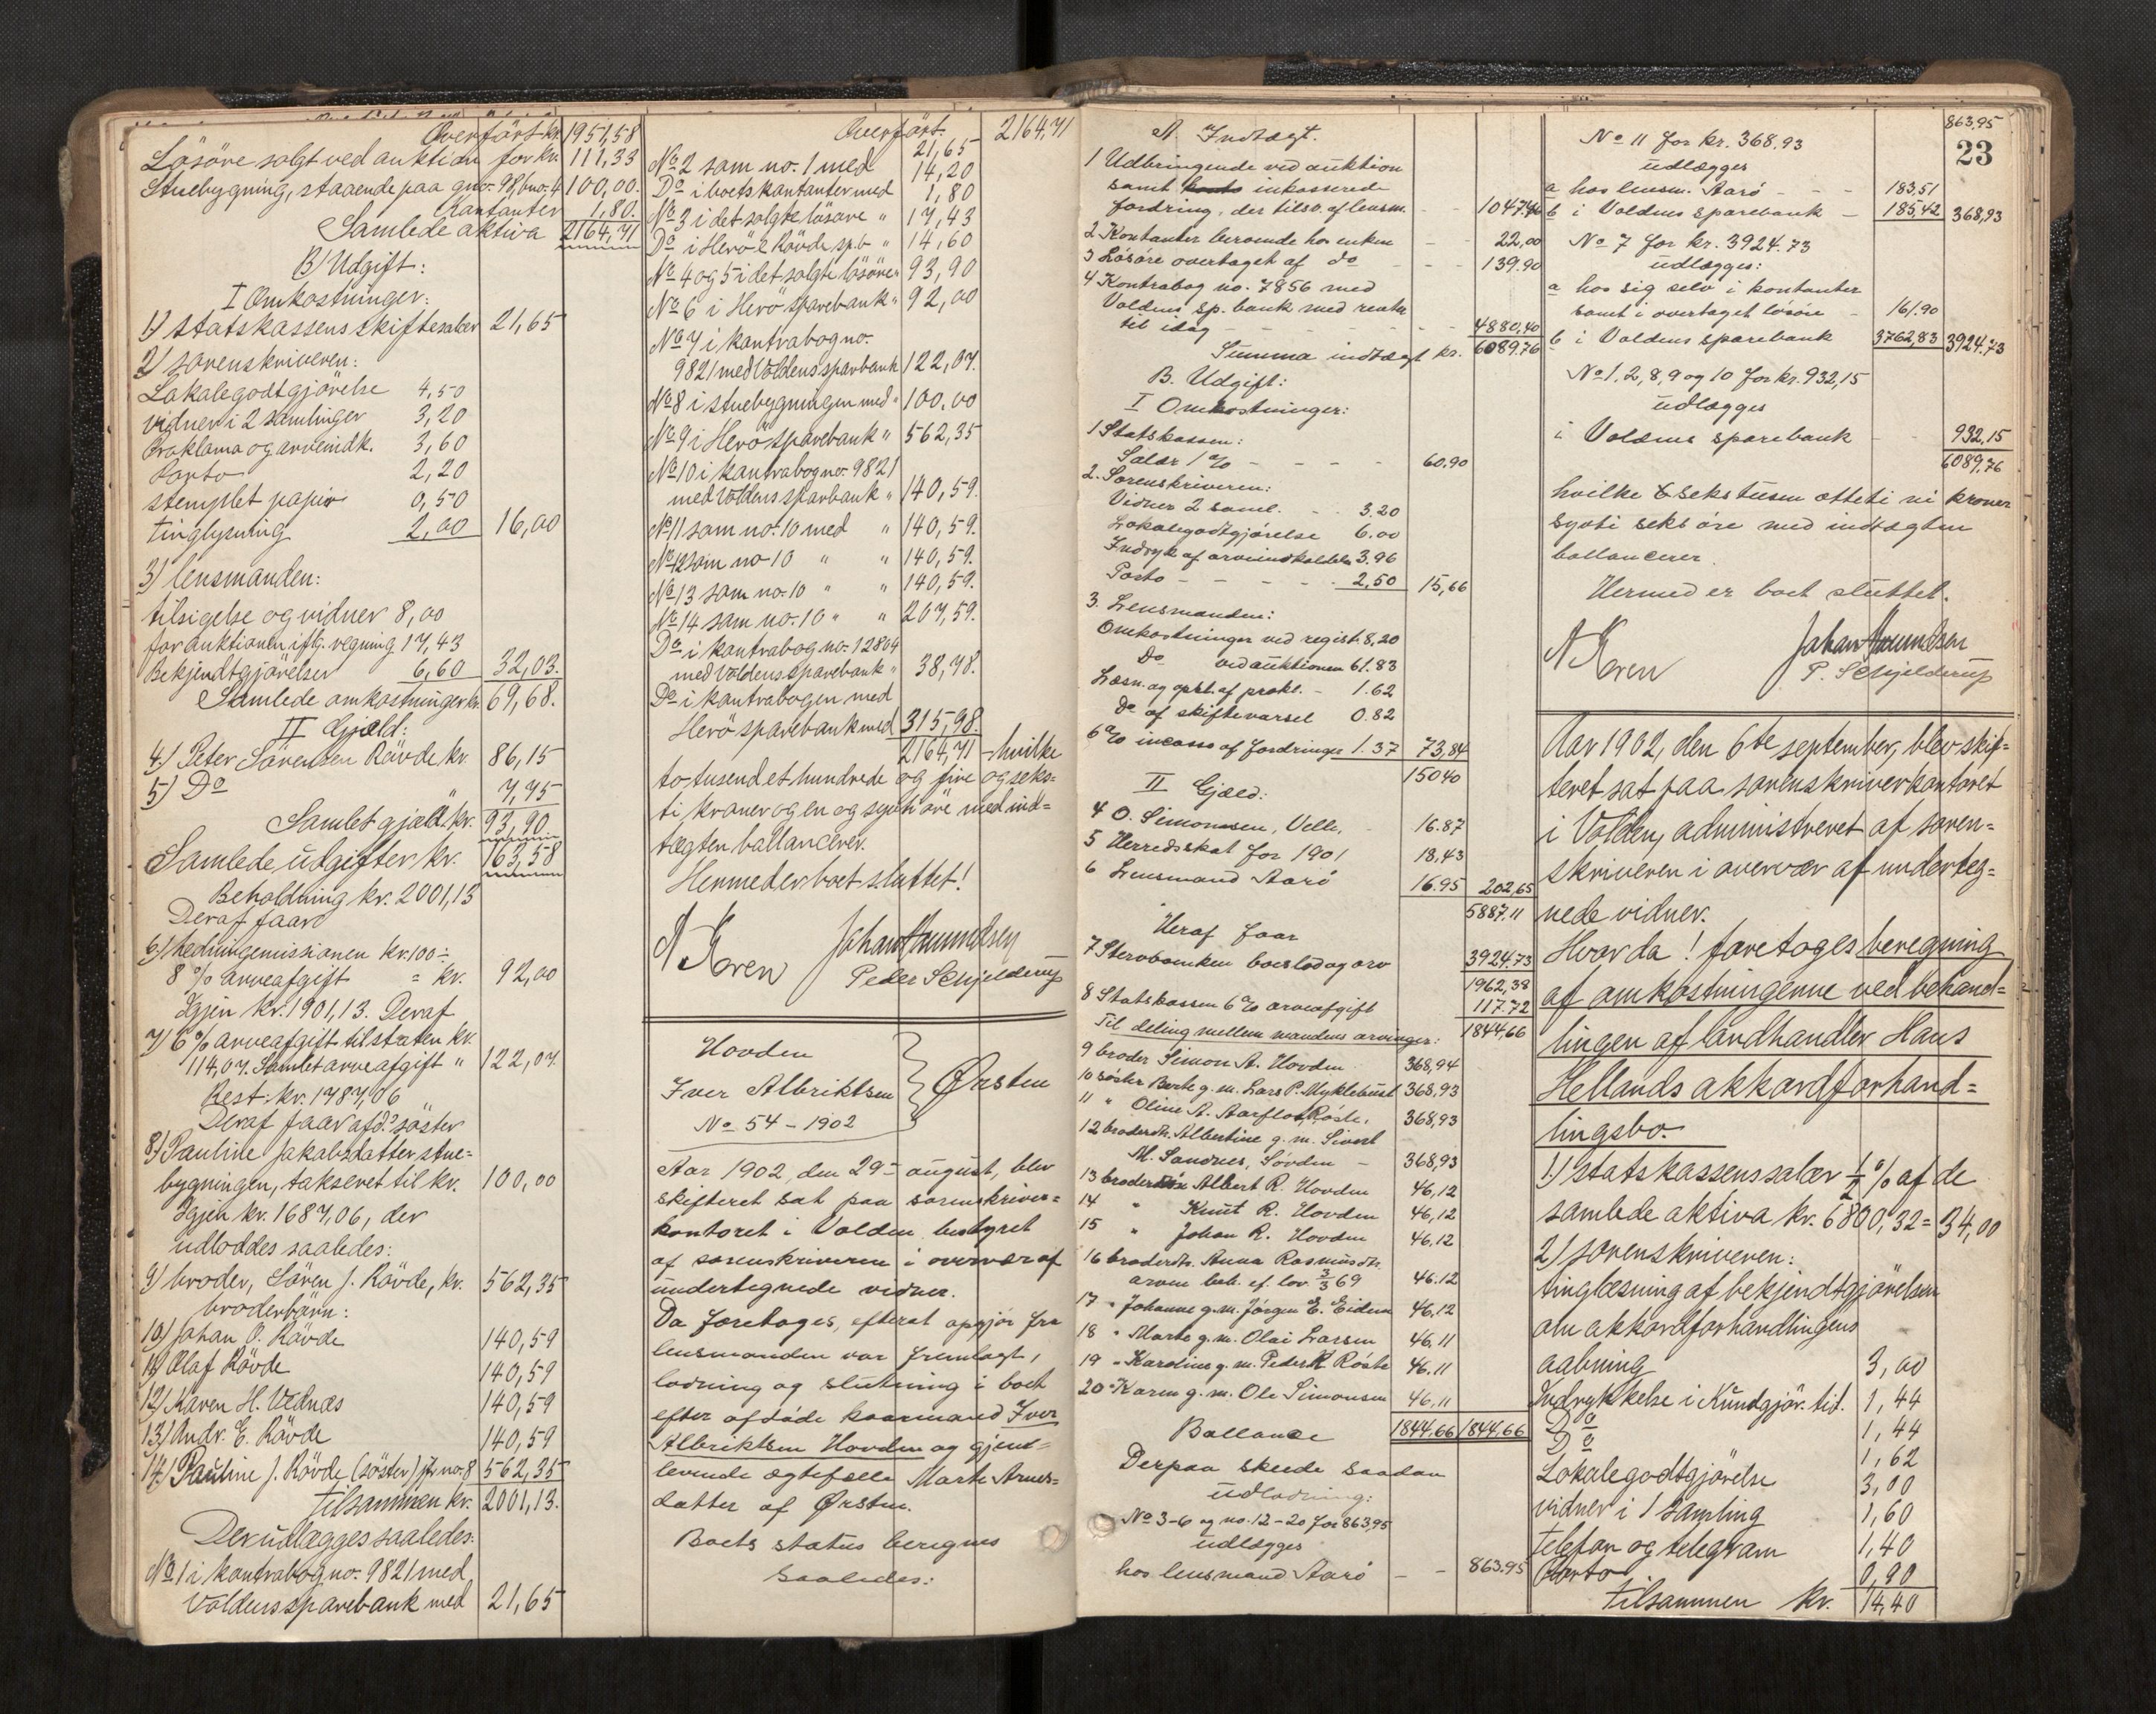 Overført kr. 1951,58
Løsøre solgt ved auktion for kr. 111,33
Stuebygning, staaende paa gno. 98, bno. 4 100,00.
Kontanter 1,80.
Samlede aktiva 2164,71
B) Udgift:
I Omkostninger:
1) Statskassens skiftesalær 21,65
2) sorenskriveren:
Lokalegodtgjörelse 4,50
vidner i 2 samlinger 3,20
Proklama og arveindk. 3,60
Porto 2,20
stemplet papir 0,50
tinglysning 2,00 16,00
3) lensmanden:
tilsigelse og vidner 8,00
for auktionen iflg. regning 17,43
Bekjendtgjörelser 6,60 32,03.
Samlede omkostninger kr. 69,68.
II Gjæld:
4) Peter Sörensen Rövde kr. 86,15
5) Do " 7,75
Samlet gjæld kr. 93,90
Samlede udgifter kr. 163,58
Beholdning kr. 2001,13
Deraf faar
6) hedningemissionen kr. 100 ÷
8 % arveafgift = kr. 92,00
Igjen kr. 1901,13. Deraf
7) 6 % arveafgift til staten kr.
114,07. Samlet arveafgift " 122,07.
Rest kr. 1787,06
Deraf faar afd. söster
8) Pauline Jakobsdatter stue-
bygningen, takseret til kr. 100,00
Igjen kr. 1687,06, der
udloddes saaledes:
9) broder, Sören J. Rövde, kr. 562,35
broderbörn:
10) Johan O. Rövde 140,59
11) Olaf Rövde 140,59
12) Karen H. Vednæs 140,59
13) Andr. E. Rövde 140,59
14) Pauline J. Rövde (söster) jfr no. 8 562,35
tilsammen kr. 2001,13.
Der udlægges saaledes:
No 1 i kontrabog no. 9821 med
Voldens sparebank med 21,65
Overfört. 2164,71
No 2 som no. 1 med 21,65
14,20
Do i boets kontanter med 1,80
No 3 i det solgte lösöre " 17,43
Do i Herö & Rövde sp.b " 14,60
No 4 og 5 i det solgte lösöre " 93,90
No 6 i Herö sparebank " 92,00
No 7 i kontrabog no.
9821 med Voldens sparbank 122,07.
No 8 i stuebygningen med " 100,00
No 9 i Herö sparebank " 562,35
No 10 i kontrabog no. 9821
med Voldens sparbank " 140,59.
No 11 som no. 10 med " 140,59.
No 12 som no. 10 " " 140,59.
No 13 som no. 10 " " 140,59.
No 14 som no. 10 " " 207,59.
Do i kontrabog no. 12804
med Voldens sparebank " 38,78.
Do i kontrabogen med
Herö sparebank med 315,98.
2164,71 – hvilke
to tusend et hundrede og fire og seks-
ti kroner og en og sytti öre med ind-
tægten ballancerer.
Hermed er boet sluttet!
N Koren Johan Amundsen
Peder Schjelderup
Hovden
Iver Albriktsen } Ørsten
No 54 – 1902
Aar 1902, den 29– august, blev
skifteret sat paa sorenskriver-
kontoret i Volden, bestyret
af sorenskriveren i overvær af
undertegnede vidner.
Da foretages, efterat opgjør fra
lensmanden var fremlagt,
lodning og slutning i boet
efter afdøde kaarmand Iver
Albriktsen Hovden og gjen-
levende ægtefælle Marte Arnes-
datter af Ørsten.
Boets status beregnes
saaledes:
A. Indtægt.
1 Udbringende ved auktion
samt inkasserede
fordring, der tilsv. af lensm. - - 1047.46
2 Kontanter beroende hos enken - - 22,00
3 Løsøre overtaget af do - - - 139.90
4 Kontrabog no. 7856 med
Voldens sp. bank med renter
til idag - - - - - - 4880,40
Summa indtægt kr. 6089.76
B. Udgift:
I Omkostninger:
1 Statskassen:
Salær 1 % - - - - 60.90
2. Sorenskriveren:
Vidner 2 saml. - - 3.20
Lokalegodtgjørelse 6.00
Indryk af arveindkaldelse 3.96
Porto - - - - - 2,50 15,66
3. Lensmanden:
Omkostninger ved regist. 8,20
Do ved auktionen 61.83
Læsn. og opsl. af prokl. - 1.62
Do af skiftevarsel 0.82
6 % incasso af fordringer 1.37 73,84
15040
II Gjæld:
4 O. Simonsen, Velle, - 16.87
5 Herredsskat for 1901 18,43
6 Lensmand Aarö 16.95 202,65
5887.11
Heraf faar
7 Stervboenken boeslod og arv 3924.73
1962,38
8 Statskassen 6 % arveafgift 117.72
Til deling mellem mandens arvinger: 1844,66
9 broder Simon A. Hovden 368,94
10 søster Berte g. m. Lars P. Myklebust 368,93
11 " Oline A. Aarflot, Røste, 368,93
12 broderdtr. Albertine g. m. Sivert
M. Sandnes, Søvden – 368,93
13 brodersøn Albert R. Hovden 46,12
14 " Knut R. Hovden 46,12
15 " Johan R. Hovden 46,12
16 broderdtr. Anna Rasmusdtr.
arven beh. ef. lov 3/3 69 46.12
17 " Johanne g. m. Jørgen E. Eidem 46,12
18 " Marte g. m. Olai Larsen 46,11
19 " Karoline g. m. Peder K Røste 46.11
20 " Karen g. m. Ole Simonsen 46,11
Ballance 1844,66 1844,66
Derpaa skeede saadan
udlodning:
No 3–6 og no. 12–20 for 863,95
udlægges
hos lensmand Aarö - - 863.95
863,95
23
No 11 for kr. 368.93
udlægges
a hos lensm. Aarö - - - 183,51
b i Voldens sparebank – 185,42 368,93
No 7 for kr. 3924.73
udlægges:
a hos sig selv i kontanter
samt i overtaget løsøre - 161.90
b i Voldens sparebank 3762,83 3924.73
No 1, 2, 8, 9 og 10 for kr. 932,15
udlægges
i Voldens sparebank - - 932,15
6089,76
hvilke sekstusen otteti ni kroner
sytti seks øre med indtægten
ballancerer.
Hermed er boet sluttet.
N Koren Johan Amundsen
P. Schjelderup
Aar 1902, den 6te september, blev skif-
teret sat paa sorenskriverkontoret
i Volden, administreret af soren-
skriveren i overvær af underteg-
nede vidner.
Hvor da! foretoges beregning
af omkostningerne ved behand-
lingen af landhandler Hans
Hellands akkordforhand-
lingsbo.
1) Statskassens salær 1/2 % af de
samlede aktiva kr. 6800,32 = 34,00
2) sorenskriveren:
tinglæsning af bekjendtgjörelsen
om akkordforhandlingens
aabning 3,00
Indrykkelse i Kundgjör. tid. 1,44
Do 1,44
Do 1,62
Lokalegodtgjörelse 3,00
vidner i 1 samling 1,60
telefon og telegram 1,40
Porto 0,90
tilsammen kr. 14,40